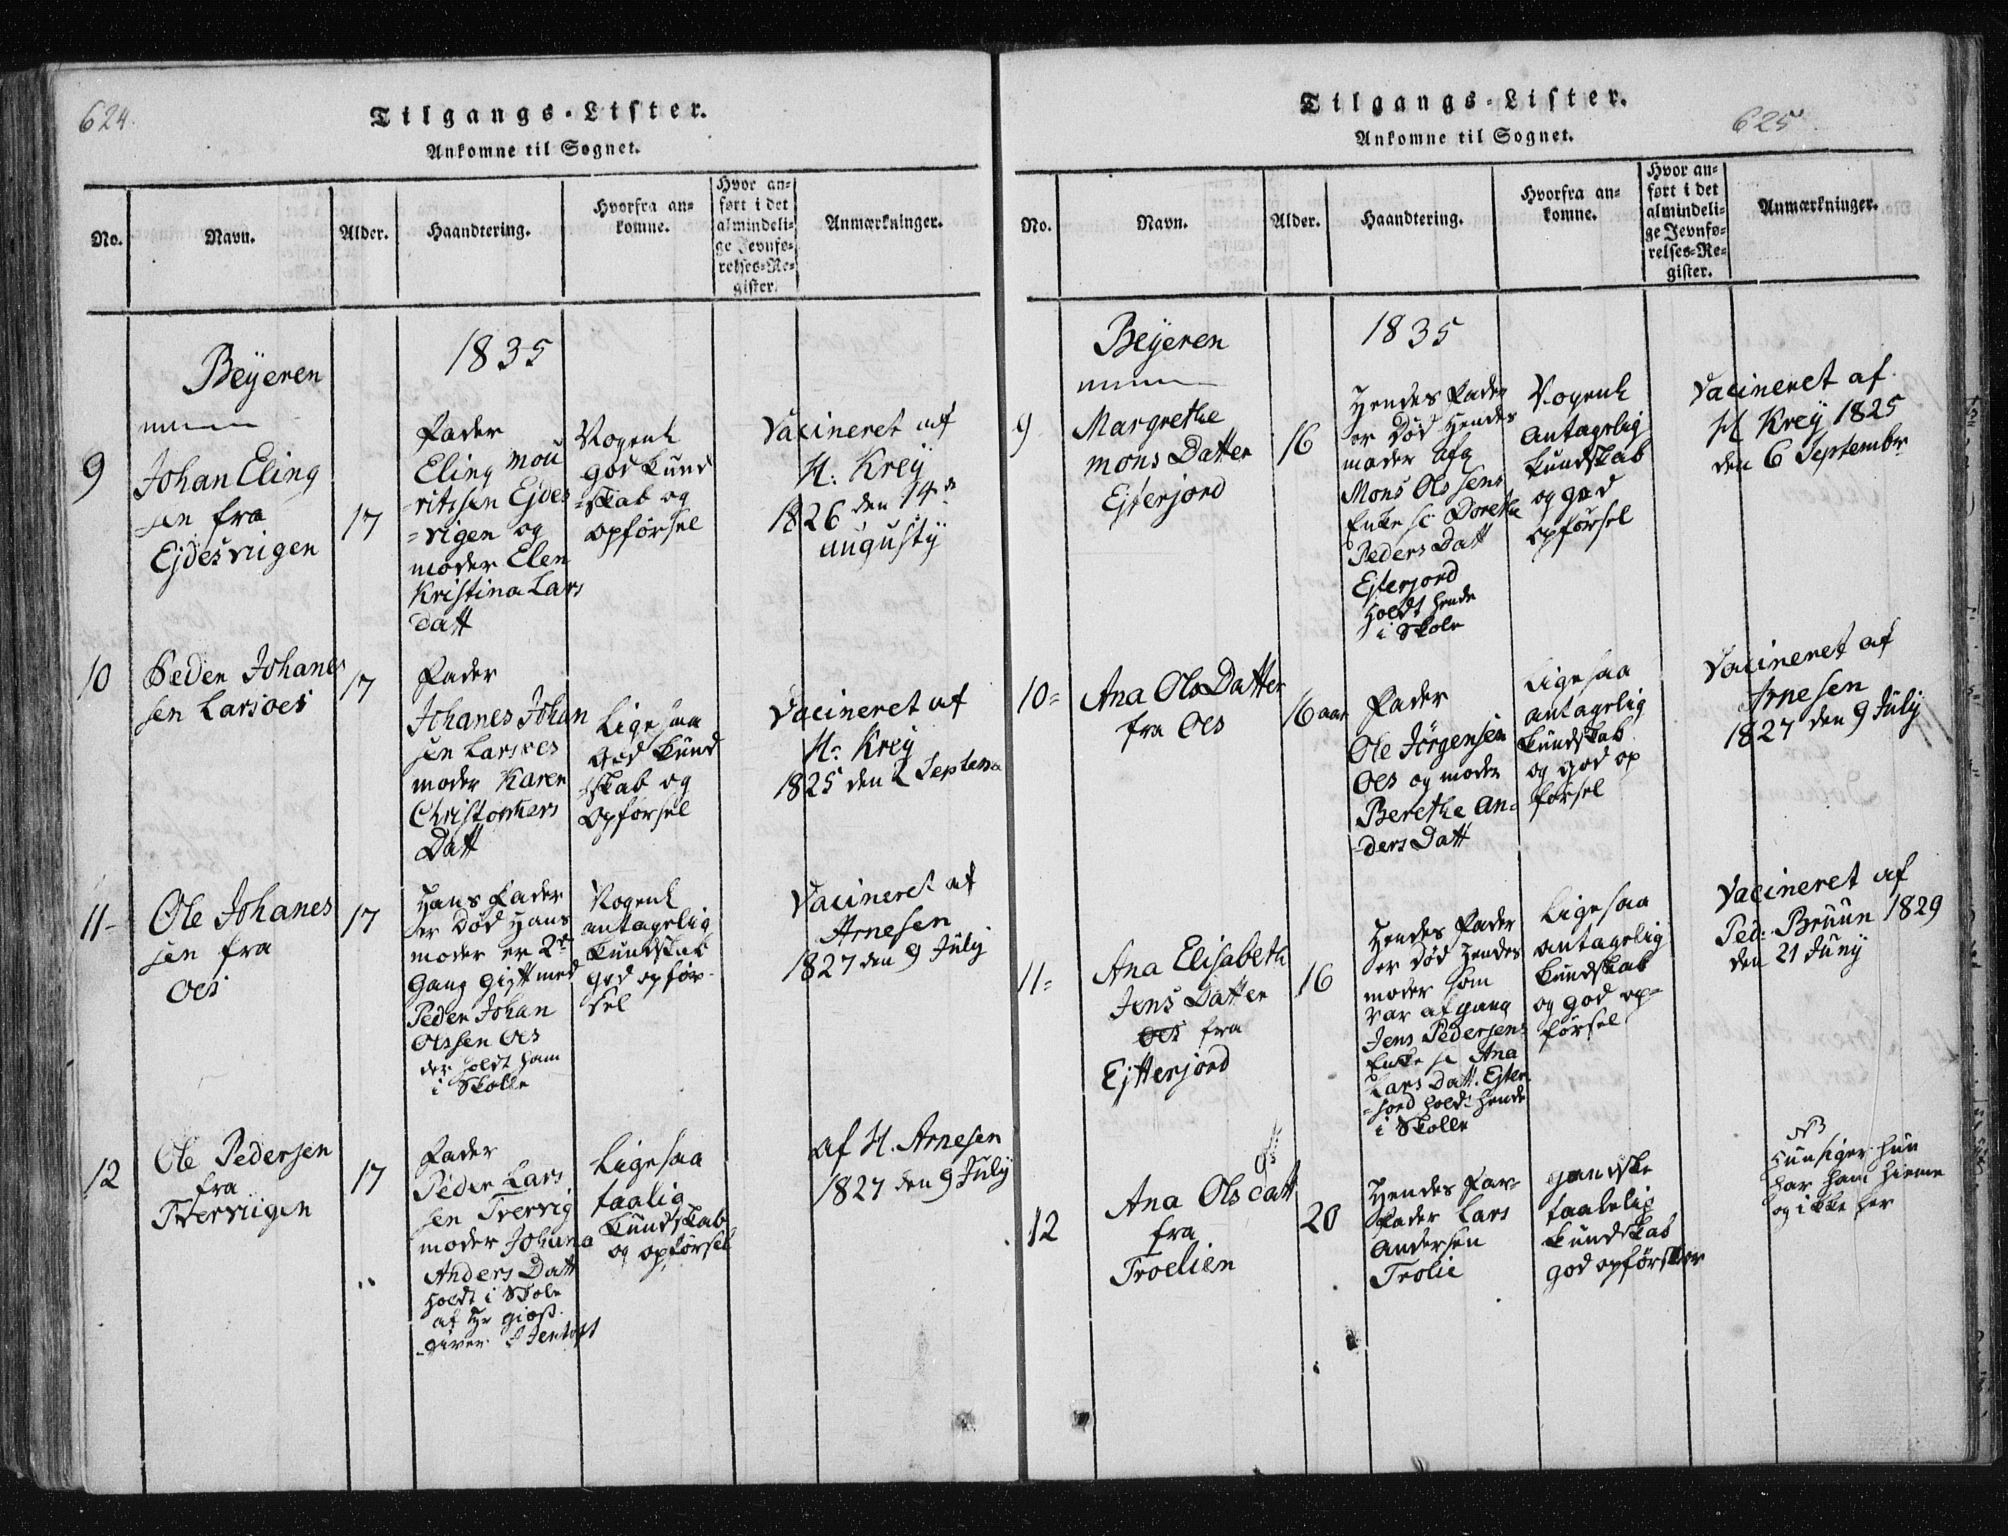 624.
Tilgangs-Lister.
Ankomne til Sognet.
No.
Navn.
Alder.
Haandtering.
Hvorfra an-
komne.
Hvor an-
ført i det
almindeli-
ge Jevnfø-
relses-Re-
gister.
Anmærkninger.
Beyeren
1835
9
Johan Eling
sen fra
Ejdesviigen
17
Fader
Eling Mou
ritssen Ejdes
=vigen og
moder Elen
Kristina Lars
datt
Nogenl
god kund
=skab og
opførsel
Vacineret af
H: Krey
1826 den 14de
augusty
10
Peder Johanes
sen Larsoes
17
Fader
Johanes Johan
sen Larsoes
moder Karen
Christophers
Datt
Ligesaa
god kund
=skab og
opførsel
Vacineret af
H: Krey
1825 den 2 Septem
11-
Ole Johanes
sen fra
Oes
17
Hans Fader
er død Hans
moder er 2de
Gang gift med
Peder Johan
Olssen Oes
der holdt ham
i Skolle
Nogenl
antagelig
kundskab
god opfør-
sel
Vacineret af
Arnesen
1827 den 9 July
12
Ole Pedersen
fra
Tverviigen
17
Fader
Peder Lars
sen Tvervig
moder Johana
Anders Datt
holdt i Skole
af Hr
Ligesaa
taalig
kundskab
og opførsel
af H. Arnesen
1827 den 9 July
625
Tilgangs-Lister.
Ankomne til Sognet.
No.
Navn.
Alder.
Haandtering.
Hvorfra an-
komne.
Hvor an-
ført i det
almindeli-
ge Jevnfø-
relses-Re-
gister.
Anmærkninger.
Beyeren
1835
9
Margrethe
Mons Datter
Ejterjord
16
Hendes Fader
er død Hendes
moder afg
Mons Olssens
Enke Dorethe
Peders Datt
Ejterjord
holdt hende
i Skole
Nogenl
antagelig
kundskab
og god
opførsel
Vacineret af
H Krey 1825
den 6 Septembr
10=
Ana Ols Datter
fra Oes
16 aar
Fader
Ole Jörgensen
Oes og moder
Berethe An=
=ders Datt
Ligesaa
antagelig
kundskab
og god op
førsel
Vacineret af
Arnesen
1827 den 9 July
11=
Ana Elisabeth
Jens Datter
Oes fra
Ejtterjord
16
Hendes Fader
er død Hendes
moder som
var afgang
Jens Pedersens
Enke Ana
Lars Datt. Ejter
=jord holdt hende
i Skolle
Ligesaa
antagelig
kundskab
og god op=
førsel
Vacineret af
Ped: Bruun 1829
den 21 Juny
12
Ana Ols datt
fra
Troelien
20
Hendes Far=
Fader Lars
Andersen
Trolie
gandske
taalelig
kundskab
god opførsel
NB
Hun siger hun
har ham hieme
og ikke her